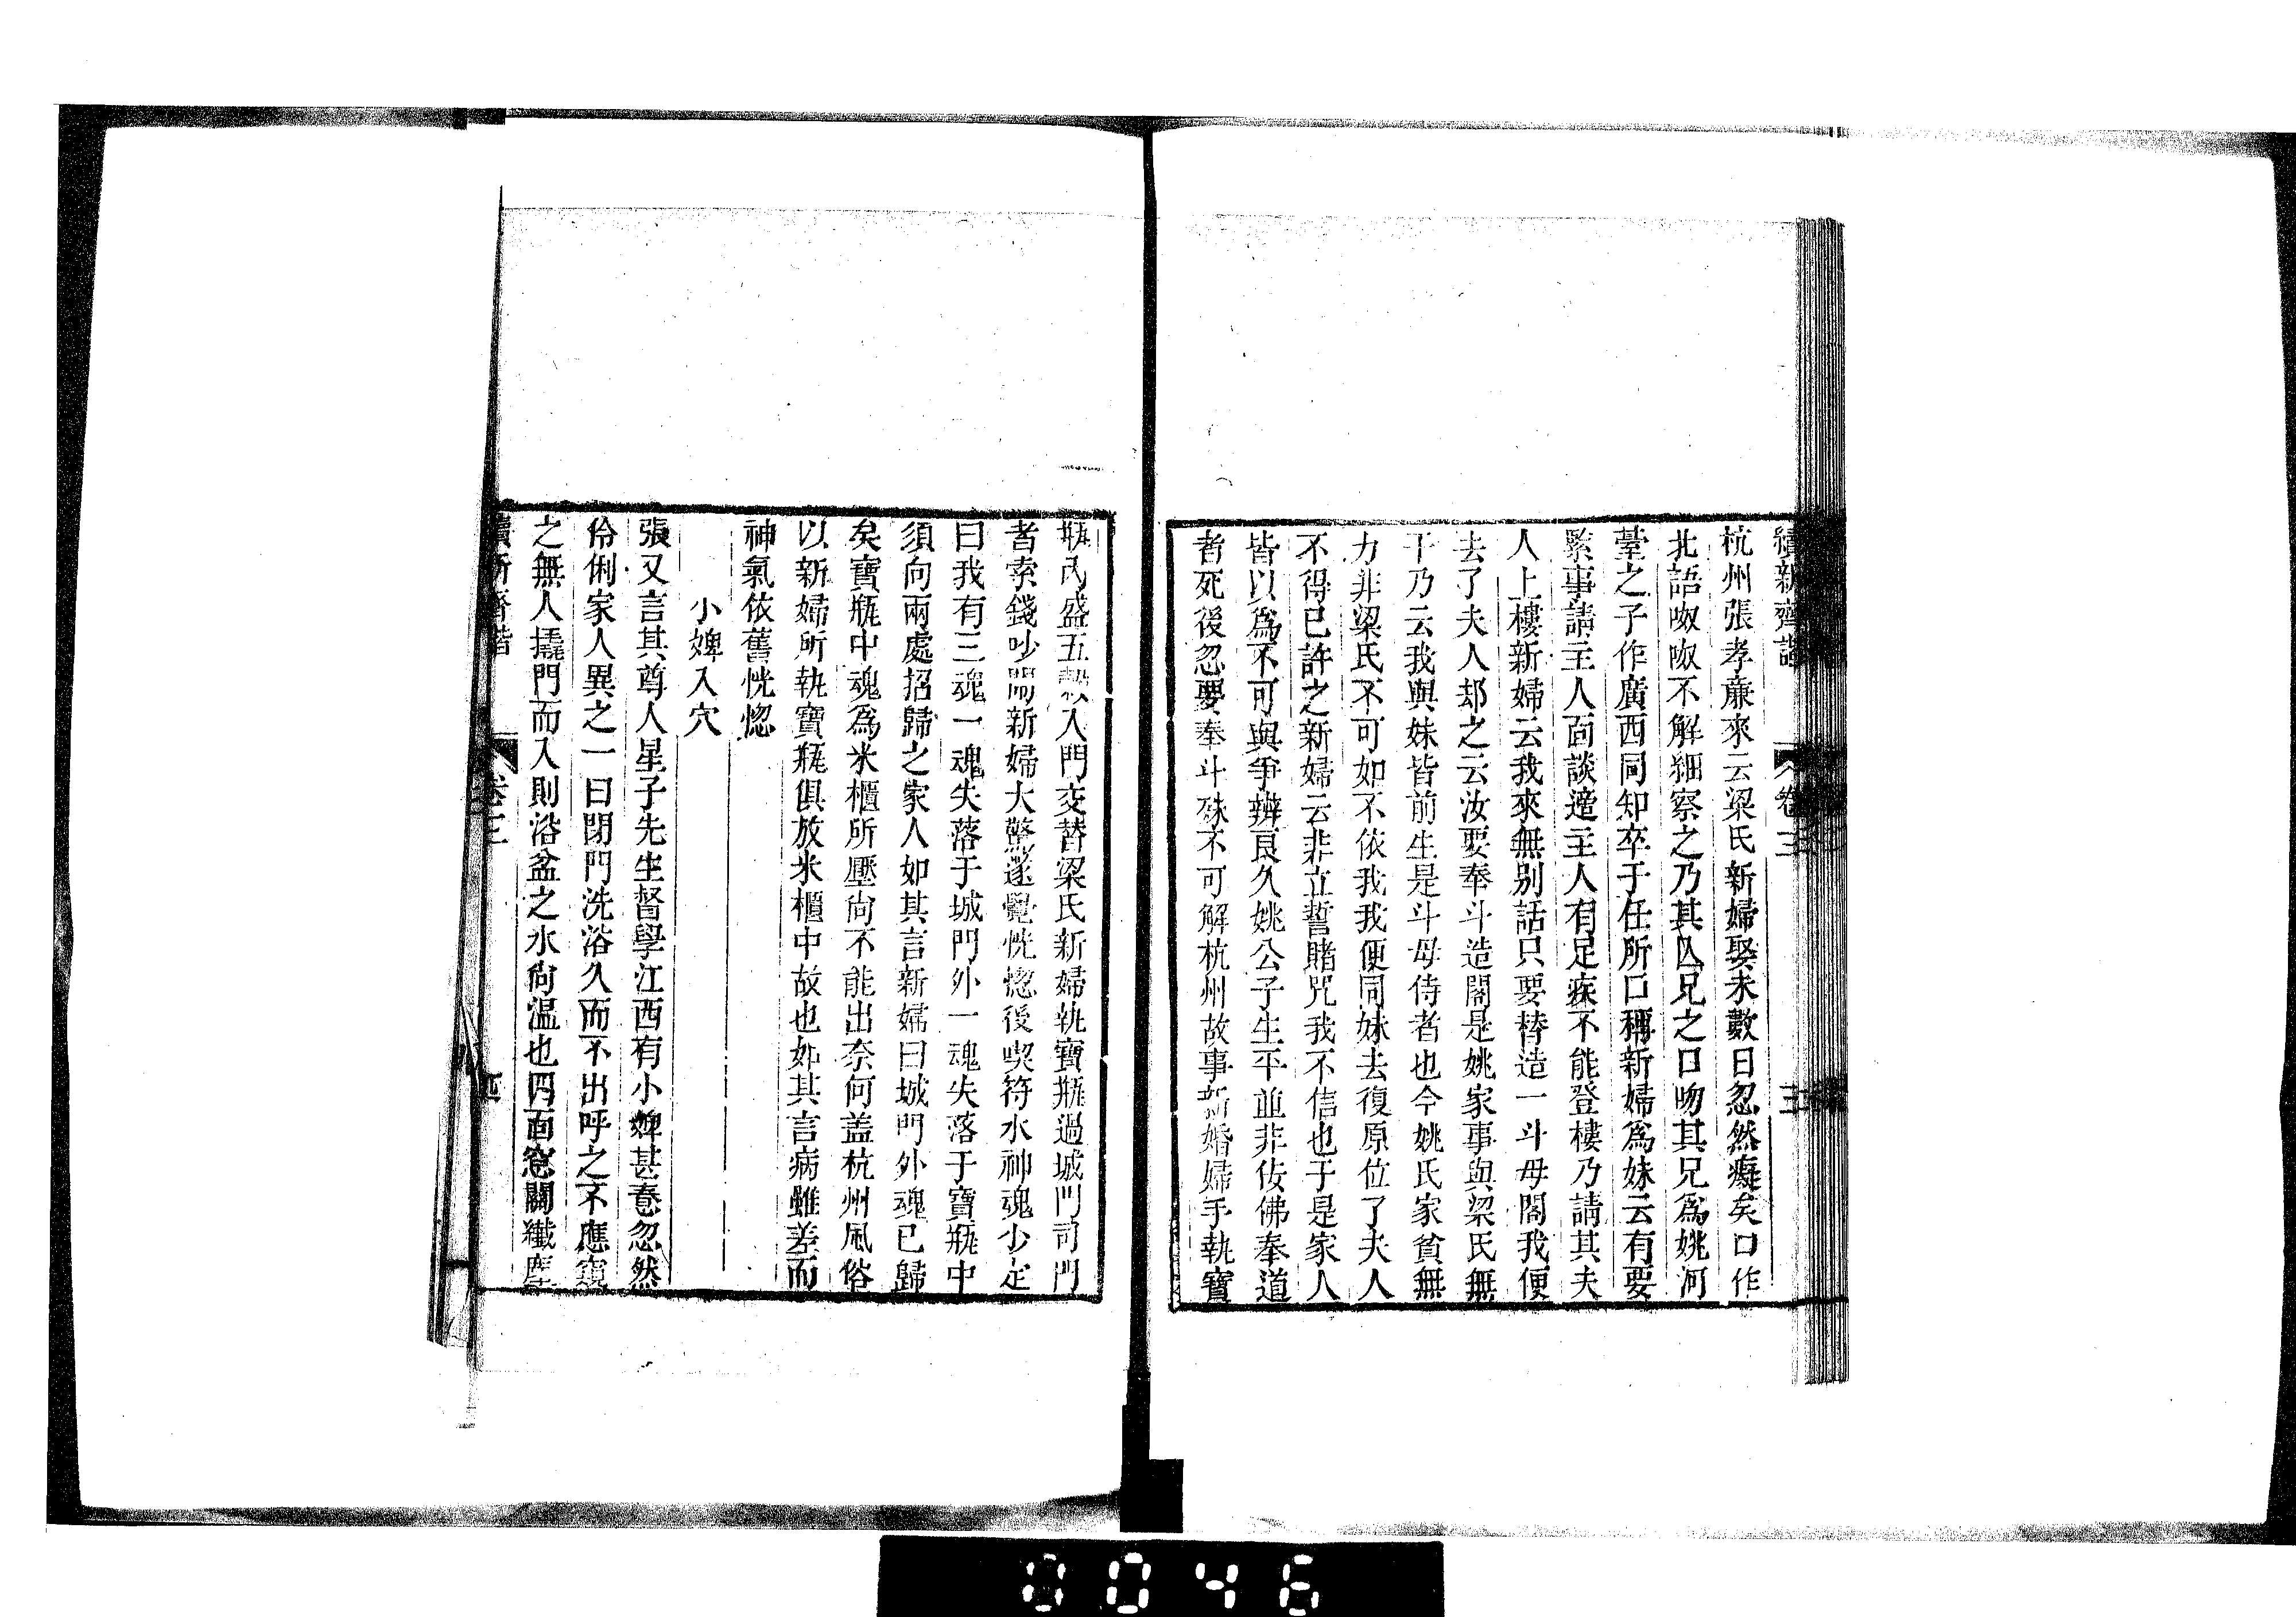 續新齊諧
卷三
三
杭州張孝廉來云梁氏新婦娶未數日忽然癡矣口作
北語呶呶不解細察之乃其亾兄之口吻其兄爲姚河
臺之子作廣西同知卒于任所口稱新婦爲妹云有要
緊事請主人面談適主人有足疾不能登樓乃請其夫
人上樓新婦云我來無别話只要替造一斗母閣我便
去了夫人却之云汝要奉斗造閣是姚家事與梁氏無
干乃云我與妹皆前生是斗母侍者也今姚氏家貧無
力非梁氏不可如不依我我便同妹去復原位了夫人
不得已許之新婦云非立誓賭咒我不信也于是家人
皆以爲不可與爭辨良久姚公子生平並非佞佛奉道
者死後忽要奉斗殊不可解杭州故事新婚婦手執寶
瓶内盛五穀入門交替梁氏新婦執寶瓶過城門司門
者索錢吵鬧新婦大驚遂覺恍惚後喫符水神魂少定
曰我有三魂一魂失落于城門外一魂失落于寶瓶中
須向兩處招歸之家人如其言新婦曰城門外魂已歸
矣寶瓶中魂爲米櫃所壓尙不能出奈何盖杭州風俗
以新婦所執寶瓶俱放米櫃中故也如其言病雖差而
神氣依舊恍惚
小婢入穴
張又言其尊人星子先生督學江西有小婢甚憃忽然
伶俐家人異之一日閉門洗浴久而不出呼之不應窺
之無人撬門而入則浴盆之水尙溫也四面窓關纖塵
續新齊諧
卷三
四
0046